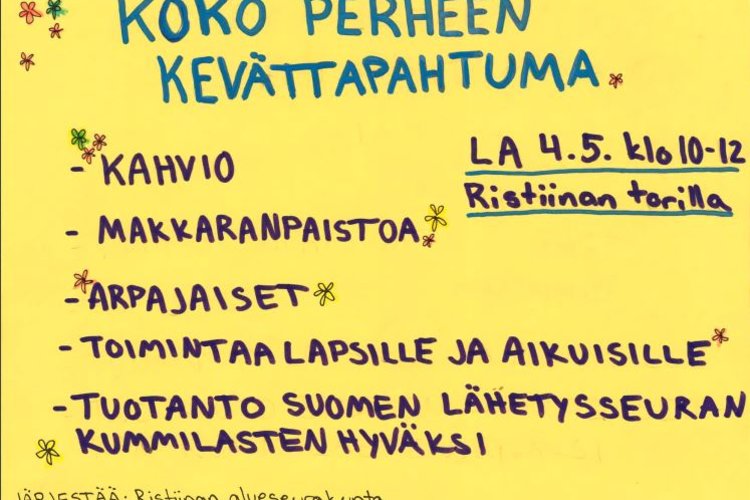 KOKO PERHEEN
KEVÄTTAPAHTUMA
LA 4.5. klo 10-12
Ristiinan torilla
- KAHVIO
- MAKKARANPAISTOA
- ARPAJAISET
- TOIMINTAA LAPSILLE JA AIKUISILLE
- TUOTANTO SUOMEN LÄHETYSSEURAN
KUMMILASTEN HYVÄKSI
JÄRJESTÄÄ: Ristiinan alueseurakunta